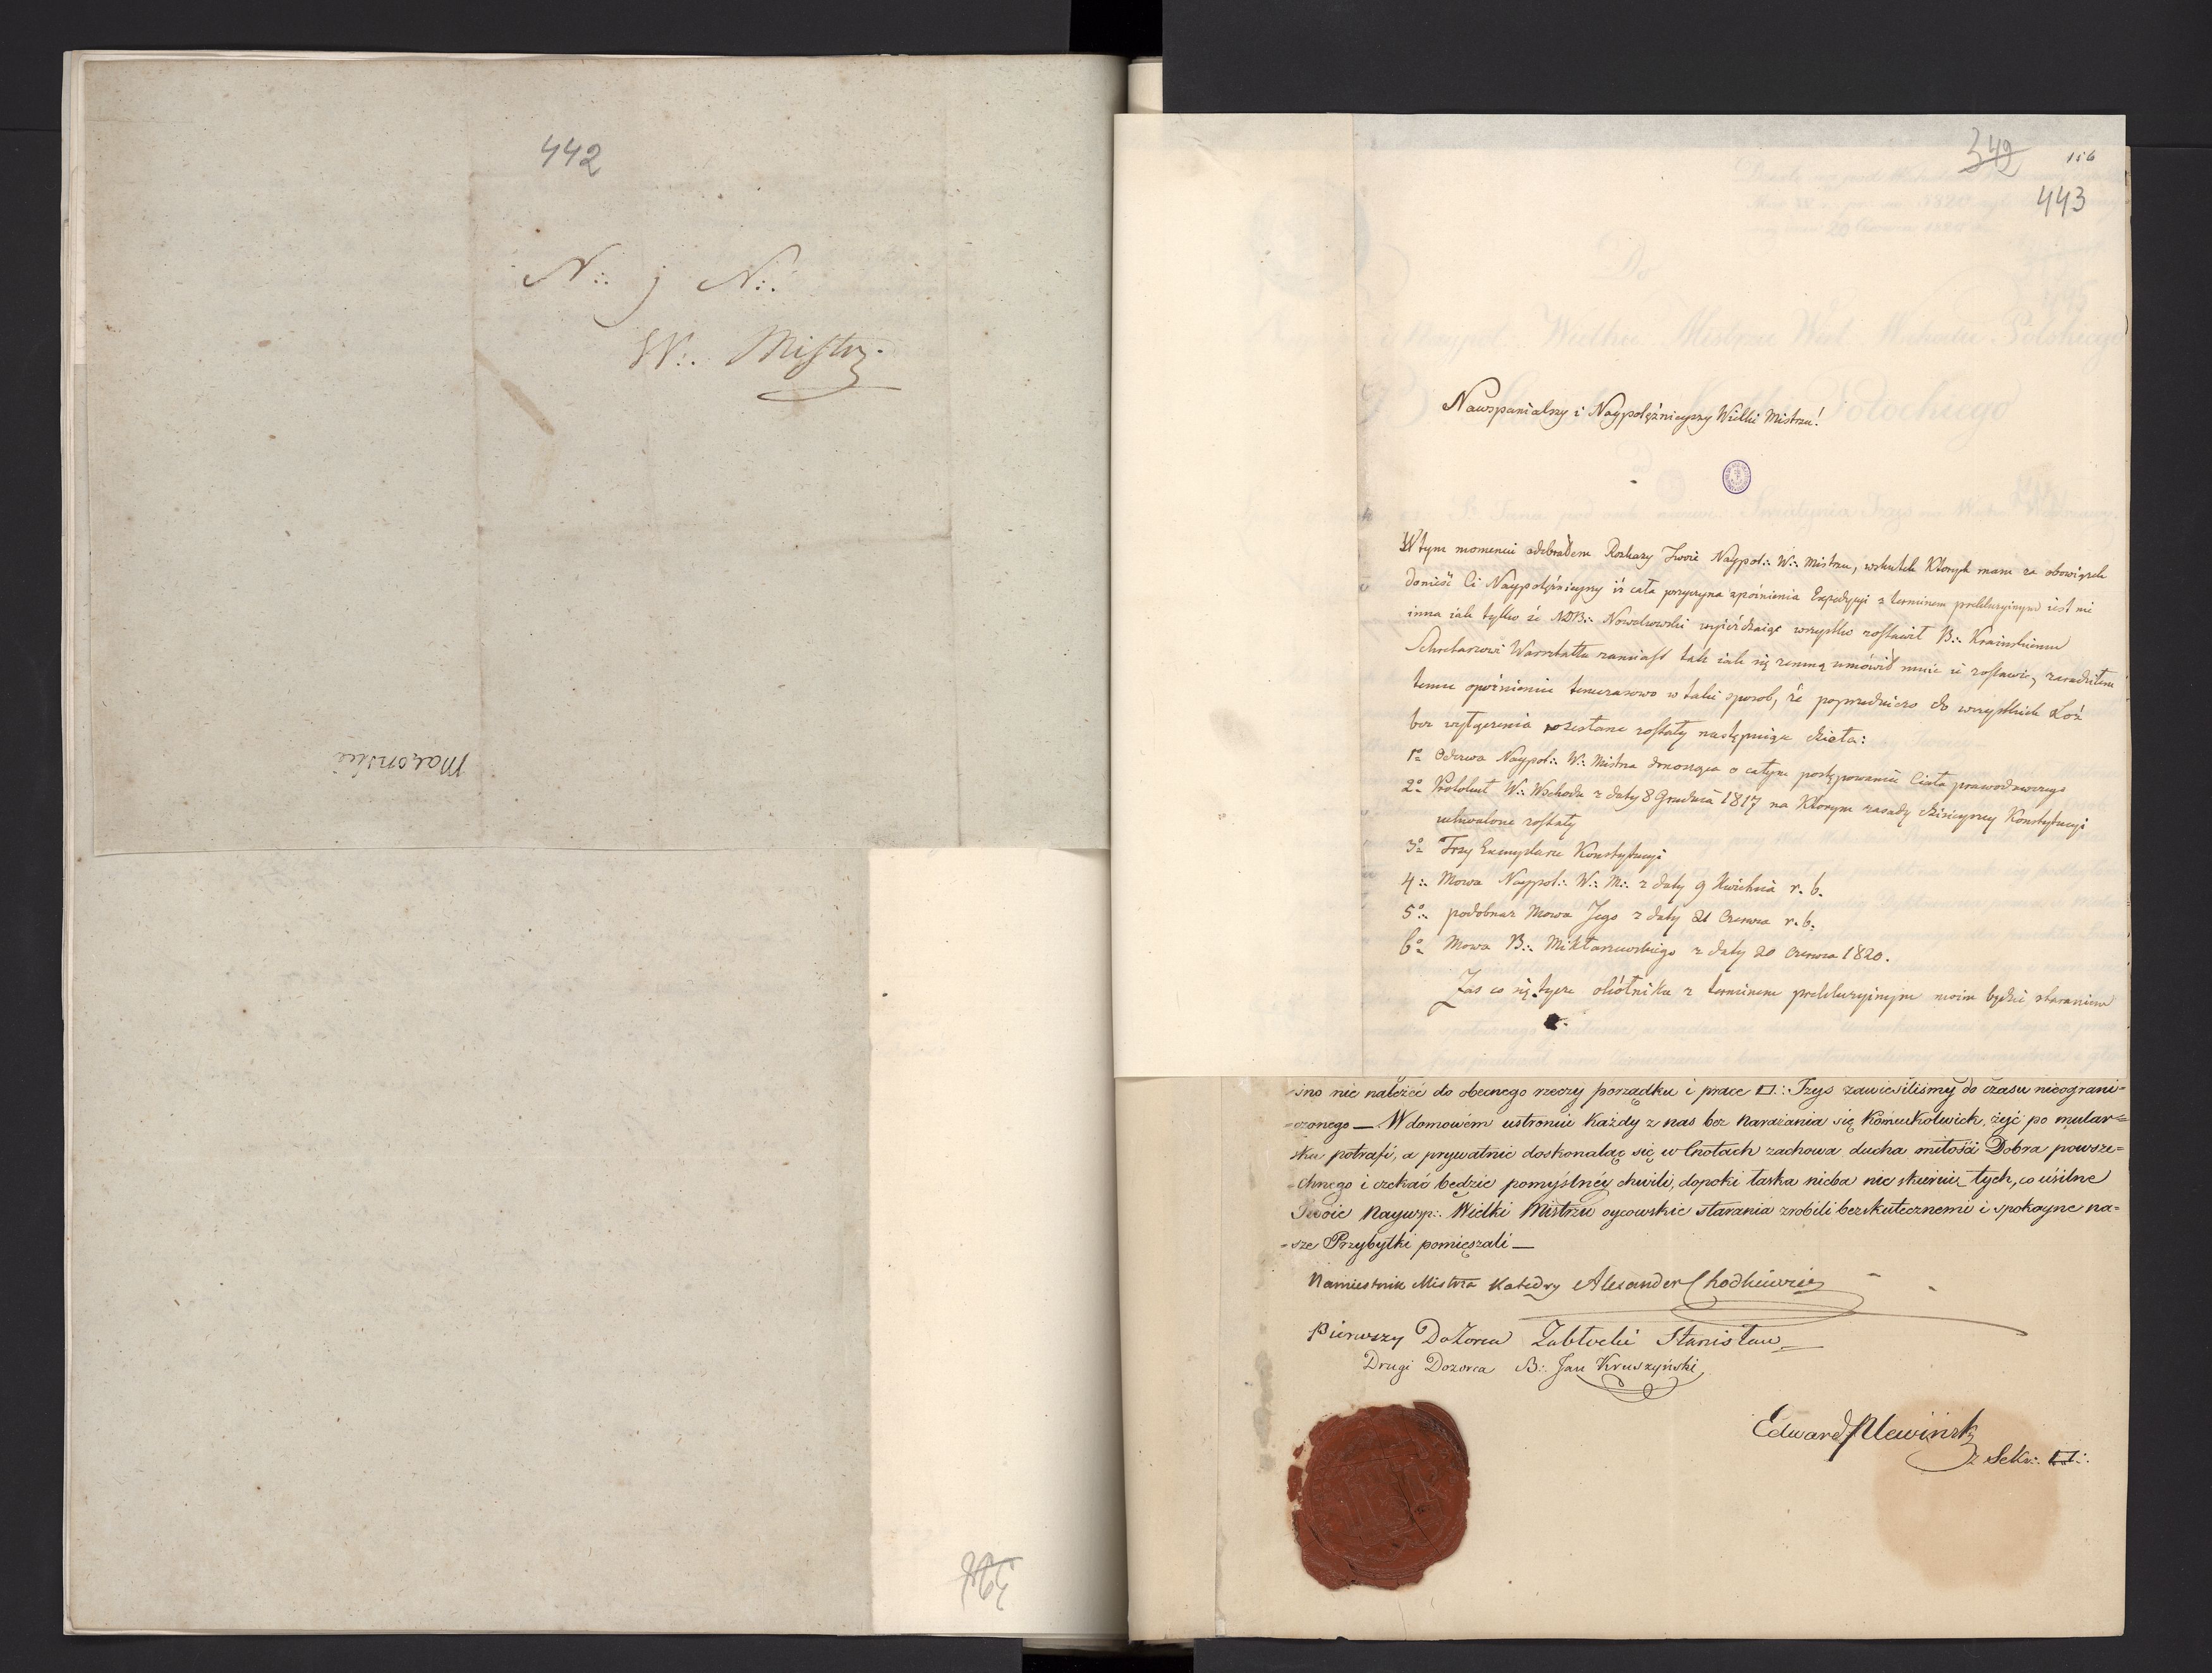 442
N∴ j N∴
W∴ Mistrz
Masonskie
349
156
443
Nawspanialszy i Naypolężnieyszy Wielki Mistrzu!
W tym momencie odebrałem Rozkazy Twoie Naypol∴ W∴ Mistrzu, wskutek Których mam za obowiązek
donieść Ci Naypotężnieyszy iż cała przyczyna zpóźnienia Expedycyi z terminem prekluzyinym iest nie
inna iak tylko że NDB∴ Nowakowski wyieżdżaiąc wszystko zostawił B∴ Krainskiemu
Sekretarzowi Warsztatu zamiast tak iak się zemną umówił mnie ie zostawić, zaradziłem
temu opóźnieniu tymczasowo w taki sposob, że poprzedniczo do wszystkich Loż
bez wyłączenia rozesłane zostały następuiące dzieła:
1º Odezwa Naypol∴ W∴ Mistrza donosząca o całym postępowaniu Ciała prawodawczego
2º Protokuł W∴ Wschodu z daty 8 Grudnia 1817 na Którym zasady dzisieyszey Konstytucyi
uchwalone zostały
3º Trzy Exemplarze Konstytucyi
4∴ Mowa Naypol∴ W∴ M∴ z daty 9 Kwietnia r. b.
5º∴ podobnaż Mowa Jego z daty 21 Czerwca r. b.
6º Mowa B∴ Mikłaszewskiego z daty 20 Czerwca 1820.
Zaś co się tycze okólnika z terminem prekluzyinym moim będzie staraniem
-sno nie należeć do obecnego rzeczy porządku i prace □∴ Trzys zawiesiliśmy do czasu nieograni=
-czonego — W domowém ustroniu każdy z nas bez narażania się komukolwiek, żyć po mular=
sku potrafi, a prywatnie doskonaląc się w Cnotach zachowa ducha miłości Dobra powsze=
-chnego i czekać będzie pomyślnéy chwili, dopoki łaska nieba nie skieruie tych, co usilne
Twoie Naywsp∴ Wielki Mistrzu oycowskie starania zrobili bezskutecznemi i spokoyne na=
-sze Przybytki pomięszali —
Namiestnik Mistrza Katedry Alexander Chodkiewicz
Pierwszy Dozorca Zabłocki Stanisław
Drugi Dozorca B∴ Jan Kruszyński
Edward Ulewinsk
z Sekr∴ □∴